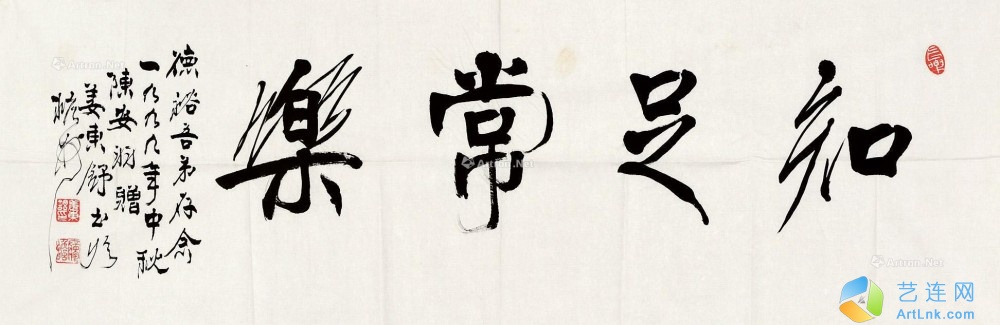 知足常樂
德裕吾弟存念
一九九九年中秋
陳安羽贈
姜東舒書於
Artron.Net
Artron.Net
Artron.Net
艺连网
ArtLnk.com